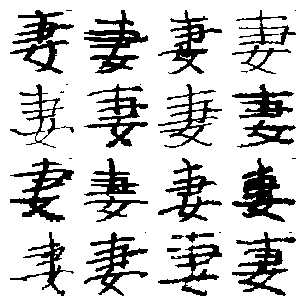 妻妻妻妻
妻妻妻妻
妻妻妻妻
妻妻妻妻